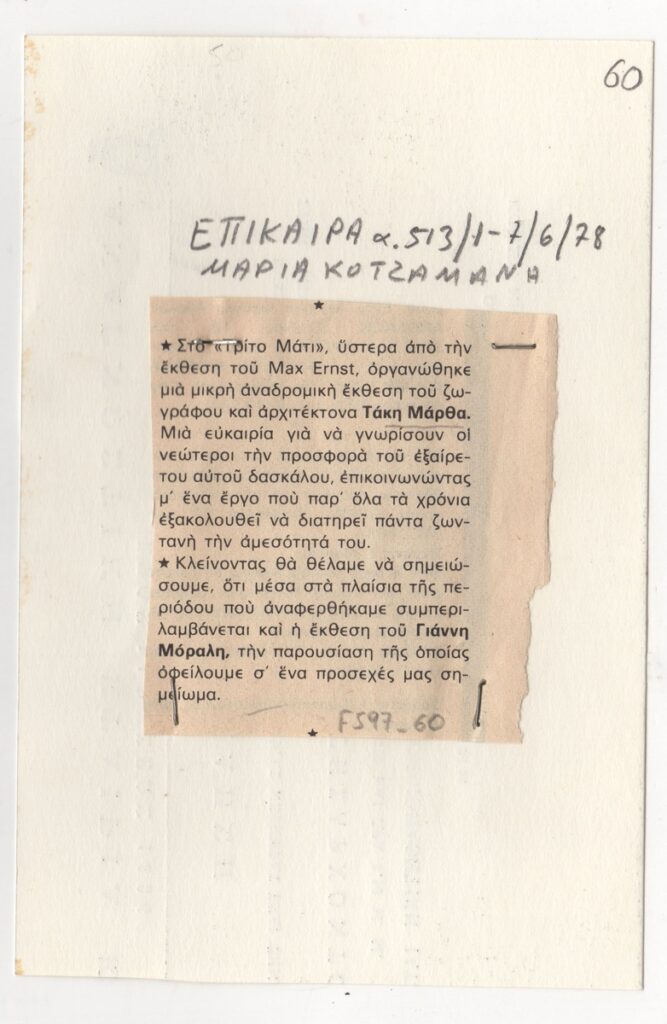 60
ΕΠΙΚΑΙΡΑ α. 513/1-7/6/78
ΜΑΡΙΑ ΚΟΤΖΑΜΑΝΗ
★ Στό «Τρίτο Μάτι», ὕστερα ἀπὸ τὴν
ἔκθεση τοῦ Max Ernst, ὀργανώθηκε
μιὰ μικρὴ ἀναδρομικὴ ἔκθεση τοῦ ζω-
γράφου καὶ ἀρχιτέκτονα Τάκη Μάρθα.
Μιὰ εὐκαιρία γιὰ νὰ γνωρίσουν οἱ
νεώτεροι τὴν προσφορὰ τοῦ ἐξαίρε-
του αὐτοῦ δασκάλου, ἐπικοινωνώντας
μ' ἕνα ἔργο ποὺ παρ' ὅλα τὰ χρόνια
ἐξακολουθεῖ νὰ διατηρεῖ πάντα ζων-
τανὴ τὴν ἀμεσότητά του.
★ Κλείνοντας θὰ θέλαμε νὰ σημειώ-
σουμε, ὅτι μέσα στὰ πλαίσια τῆς πε-
ριόδου ποὺ ἀναφερθήκαμε συμπερι-
λαμβάνεται καὶ ἡ ἔκθεση τοῦ Γιάννη
Μόραλη, τὴν παρουσίαση τῆς ὁποίας
ὀφείλουμε σ' ἕνα προσεχές μας ση-
μείωμα.
F597_60